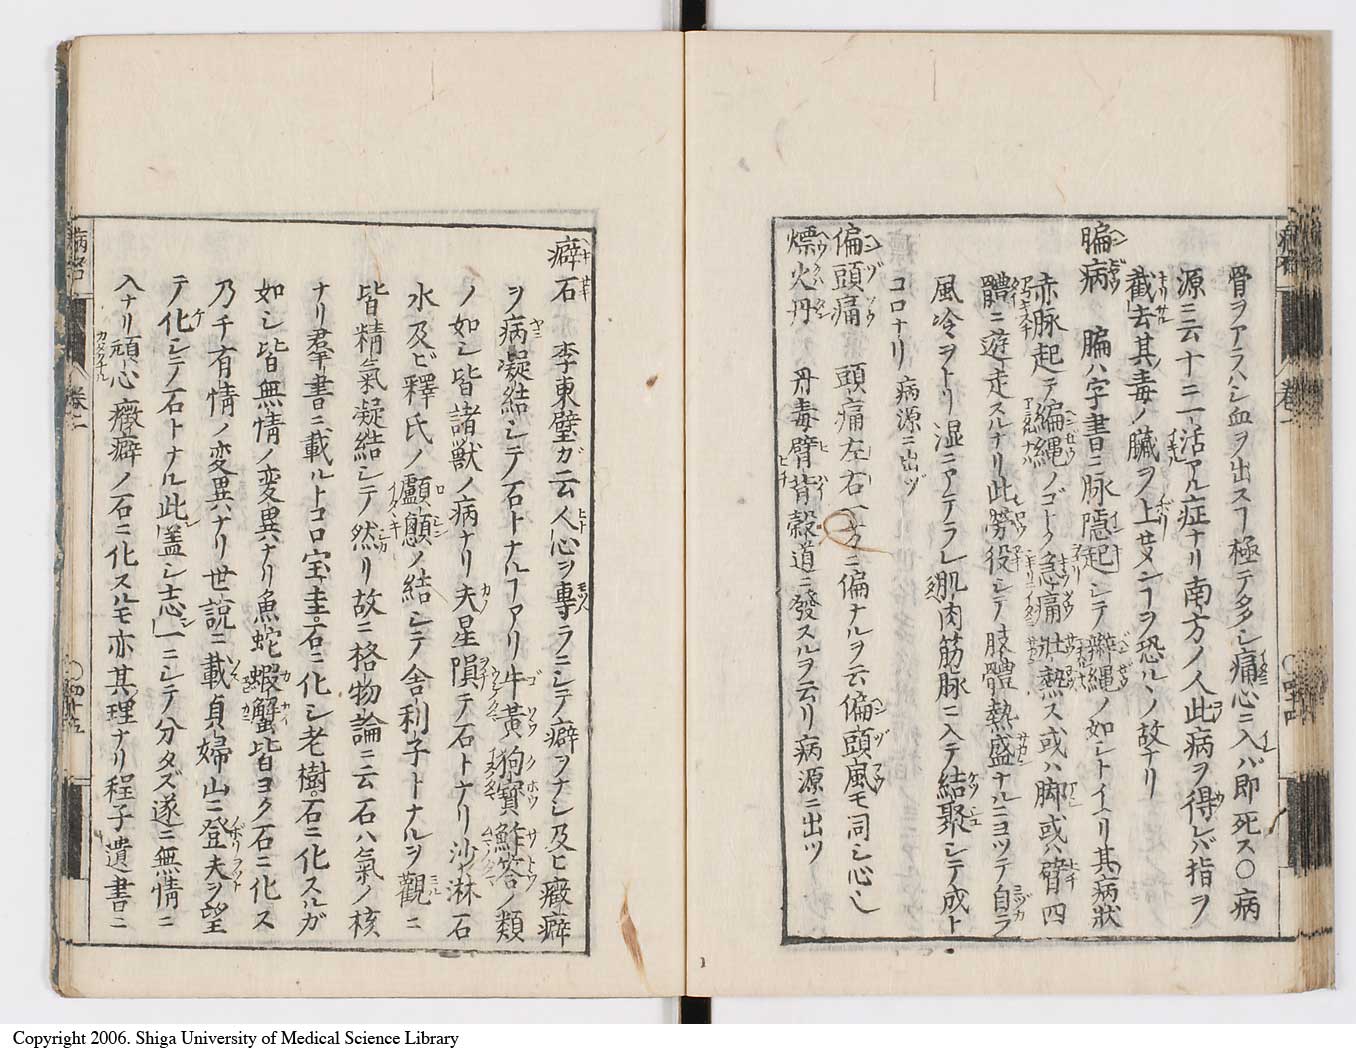 骨ヲアラハシ血ヲ出スヿ極テ多シ痛心ニ入バ即死ス〇病
源ニ云十ニ一活アル症ナリ南方ノ人此病ヲ得レバ指ヲ
截去其毒ノ臓ヲ上セメンヿヲ恐ルヽノ故ナリ
㾫病 㾫ハ字書ニ脉隱起シテ辮縄ノ如シトイヘリ其病状
赤脉起テ編縄ノゴトク急痛壮熱ス或ハ脚或ハ臂四
體ニ遊走スルナリ此労役シテ肢體熱盛ナルニヨツテ自ラ
風冷ヲトリ湿ニアテラレ肌肉筋脉ニ入テ結聚シテ成ト
コロナリ 病源ニ出ヅ
偏頭痛 頭痛左右一方ニ偏ナルヲ云偏頭風モ同シ心也
熛火丹 丹毒臂背穀道ニ發スルヲ云リ病源ニ出ツ
癖石 李東璧ガ云人心ヲ專ラニシテ癖ヲナシ及ヒ癥癖
ヲ病凝結シテ石トナルヿアリ牛黃狗寶鮓荅ノ類
ノ如シ皆諸獣ノ病ナリ夫星隕テ石トナリ沙淋石
水及ビ釋氏ノ顱顖ノ結シテ舎利子トナルヲ觀ニ
皆精氣凝結シテ然リ故ニ格物論ニ云石ハ氣ノ核
ナリ羣書ニ載ルトコロ宝圭石ニ化シ老樹石ニ化スルガ
如シ皆無情ノ変異ナリ魚蛇蝦蟹皆ヨク石ニ化ス
乃チ有情ノ変異ナリ世説ニ載貞婦山ニ登夫ヲ望
テ化シテ石トナル此蓋シ志一ニシテ分タズ遂ニ無情ニ
入ナリ頑心癥癖ノ石ニ化スルモ亦其理ナリ程子遺書ニ
病名 巻二 〇四十五
Copyright 2006. Shiga University of Medical Science Library